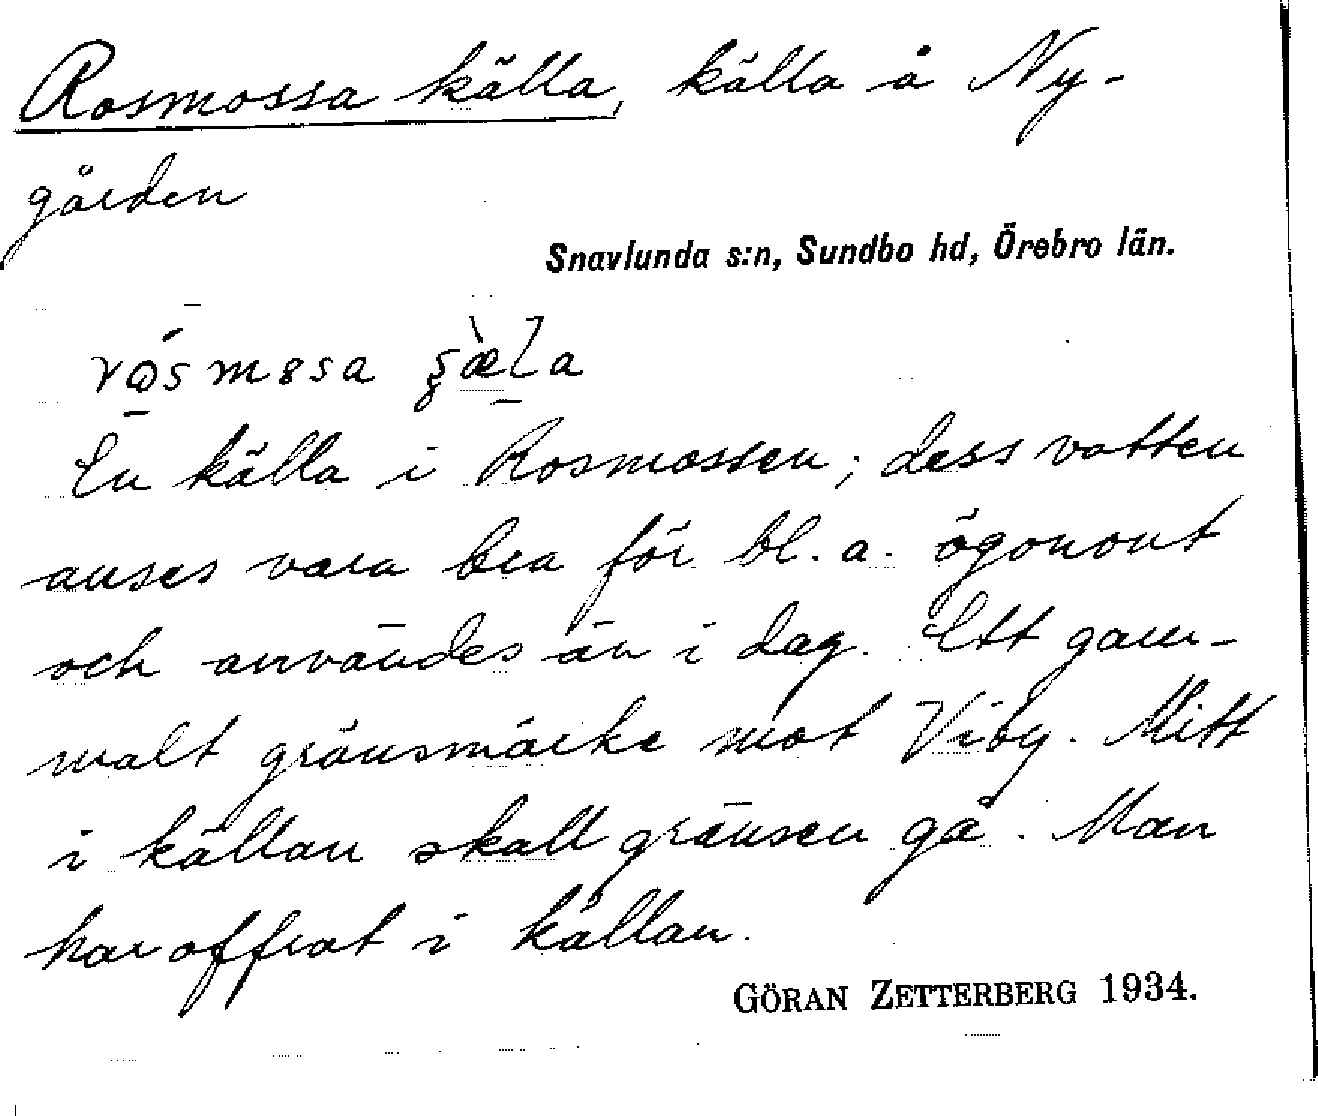 Rosmossa källa, källa å Ny-
gården
Snavlunda s:n, Sundbo hd, Örebro län.
En källa i Rosmossen; dess vatten
anses vara bra för bl. a. ögonont
och användes än i dag. Ett gam-
malt gränsmärke mot Viby. Mitt
i källan skall gränsen gå. Man
har offrat i källan.
GÖRAN ZETTERBERG 1934.